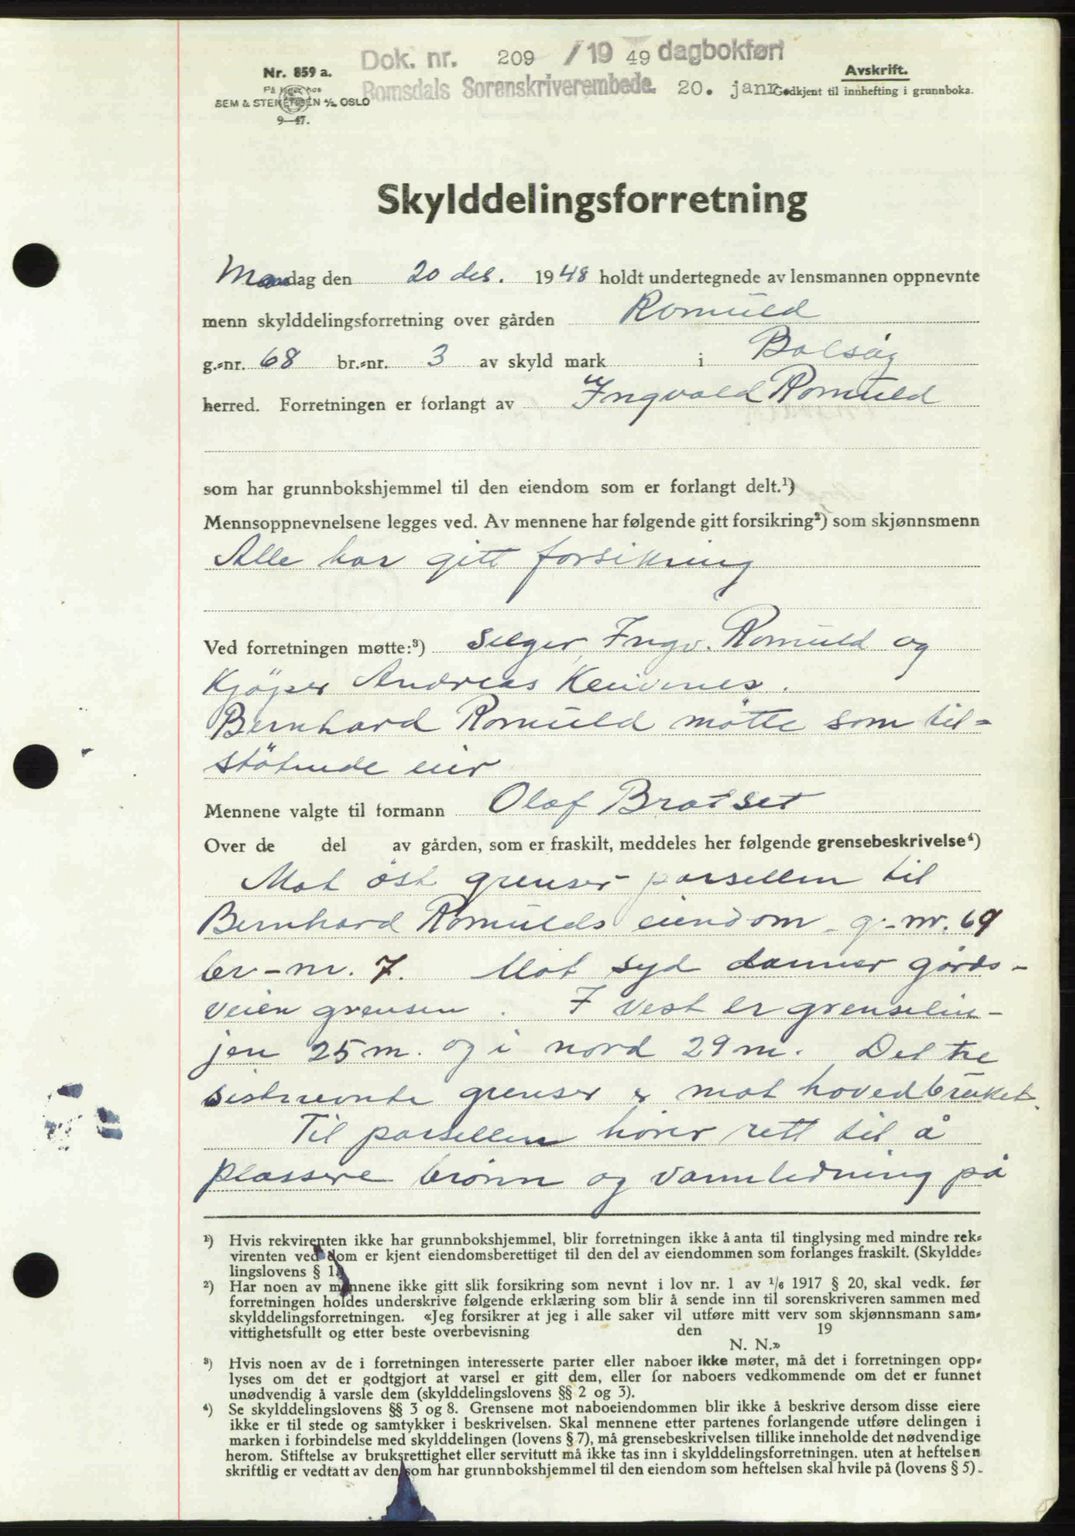 Dok. nr. 209 / 19 49 dagbokført
Romsdals Sorenskriverembede. 20. janr.
Nr. 859 a.
På lager hos
SEM & STENERSEN A/S, OSLO
9—47.
Avskrift.
Godkjent til innhefting i grunnboka.
Skylddelingsforretning
Mandag den 20 des. 1948 holdt undertegnede av lensmannen oppnevnte
menn skylddelingsforretning over gården Romuld
g.-nr. 68 br.-nr. 3 av skyld mark i Bolsøy
herred. Forretningen er forlangt av Ingvald Romuld
som har grunnbokshjemmel til den eiendom som er forlangt delt.¹)
Mennsoppnevnelsene legges ved. Av mennene har følgende gitt forsikring²) som skjønnsmenn
Alle har gitt forsikring
Ved forretningen møtte:³) Selger, Ingv. Romuld og
Kjöper Andreas
Bernhard Romuld mötte som til-
stötende eier
Mennene valgte til formann Olaf Bratset
Over de del av gården, som er fraskilt, meddeles her følgende grensebeskrivelse⁴)
Mot öst grenser parsellen til
Bernhard Romulds eiendom g.-nr. 69
br-nr. 7. Mot syd danner gårds-
veien grensen. I vest er grenselin-
jen 25 m. og i nord 29 m. Det tre
sistnevnte grenser er mot hovedbruket.
Til parsellen hörer rett til å
plassere brönn og vannledning på
¹) Hvis rekvirenten ikke har grunnbokshjemmel, blir forretningen ikke å anta til tinglysing med mindre rek-
virenten ved dom er kjent eiendomsberettiget til den del av eiendommen som forlanges fraskilt. (Skyldde-
lingslovens § 1.)
²) Har noen av mennene ikke gitt slik forsikring som nevnt i lov nr. 1 av 1/6 1917 § 20, skal vedk. før
forretningen holdes underskrive følgende erklæring som blir å sende inn til sorenskriveren sammen med
skylddelingsforretningen. «Jeg forsikrer at jeg i alle saker vil utføre mitt verv som skjønnsmann sam-
vittighetsfullt og etter beste overbevisning den 19
N. N.»
³) Hvis noen av de i forretningen interesserte parter eller naboer ikke møter, må det i forretningen opp-
lyses om det er godtgjort at varsel er gitt dem, eller for naboers vedkommende om det er funnet
unødvendig å varsle dem (skylddelingslovens §§ 2 og 3).
⁴) Se skylddelingslovens §§ 3 og 8. Grensene mot naboeiendommen blir ikke å beskrive dersom disse eiere
ikke er til stede og samtykker i beskrivelsen. Skal mennene etter partenes forlangende utføre delingen i
marken i forbindelse med skylddelingen (lovens § 7), må grensebeskrivelsen tillike inneholde det nødvendige
herom. Stiftelse av bruksrettighet eller servitutt må ikke tas inn i skylddelingsforretningen, uten at heftelsen
skriftlig er vedtatt av den som har grunnbokshjemmel til den eiendom som heftelsen skal hvile på (lovens § 5).